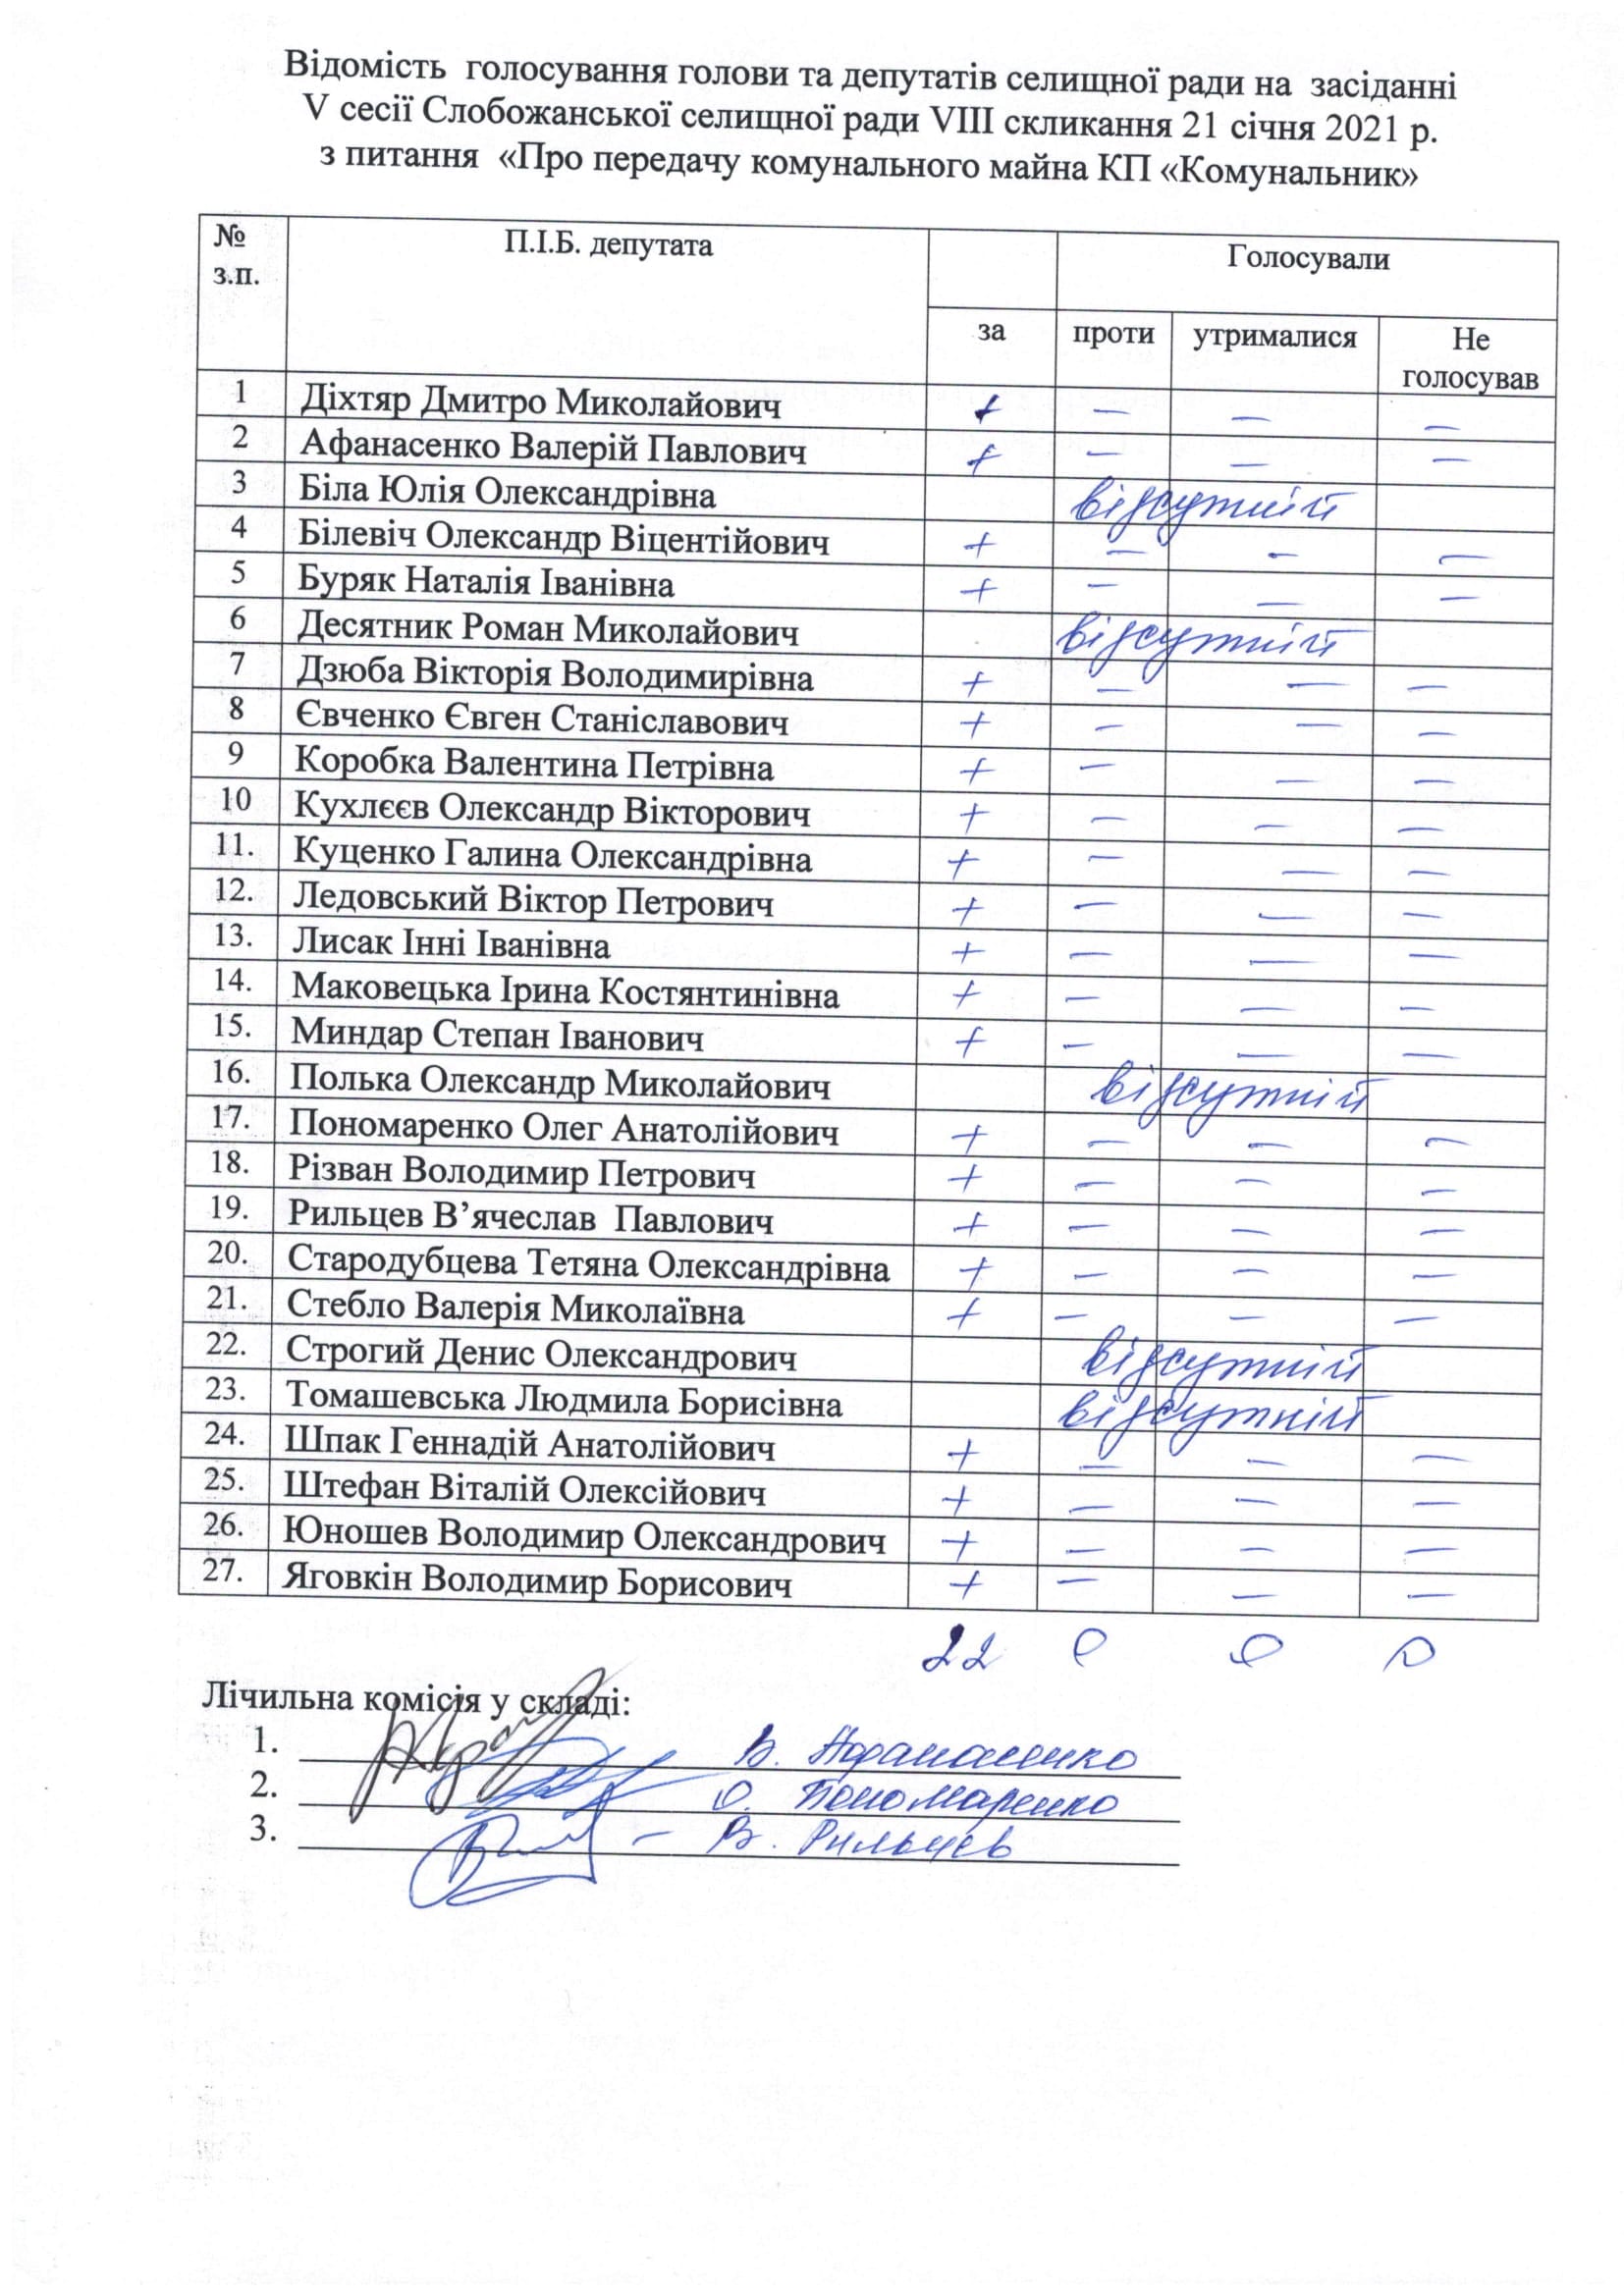 Відомість голосування голови та депутатів селищної ради на засіданні
V сесії Слобожанської селищної ради VIII скликання 21 січня 2021 р.
з питання «Про передачу комунального майна КП «Комунальник»
№ з.п. П.І.Б. депутата Голосували
за проти утрималися Не голосував
1 Діхтяр Дмитро Миколайович + – – –
2 Афанасенко Валерій Павлович + – – –
3 Біла Юлія Олександрівна відсутній
4 Білевіч Олександр Віцентійович + – – –
5 Буряк Наталія Іванівна + – – –
6 Десятник Роман Миколайович відсутній
7 Дзюба Вікторія Володимирівна + – – –
8 Євченко Євген Станіславович + – – –
9 Коробка Валентина Петрівна + – – –
10 Кухлєєв Олександр Вікторович + – – –
11. Куценко Галина Олександрівна + – – –
12. Ледовський Віктор Петрович + – – –
13. Лисак Інні Іванівна + – – –
14. Маковецька Ірина Костянтинівна + – – –
15. Миндар Степан Іванович + – – –
16. Полька Олександр Миколайович відсутній
17. Пономаренко Олег Анатолійович + – – –
18. Різван Володимир Петрович + – – –
19. Рильцев В’ячеслав Павлович + – – –
20. Стародубцева Тетяна Олександрівна + – – –
21. Стебло Валерія Миколаївна + – – –
22. Строгий Денис Олександрович відсутній
23. Томашевська Людмила Борисівна відсутній
24. Шпак Геннадій Анатолійович + – – –
25. Штефан Віталій Олексійович + – – –
26. Юношев Володимир Олександрович + – – –
27. Яговкін Володимир Борисович + – – –
22 0 0 0
Лічильна комісія у складі:
1. В. Афанасенко
2. О. Пономаренко
3. – В. Рильцев